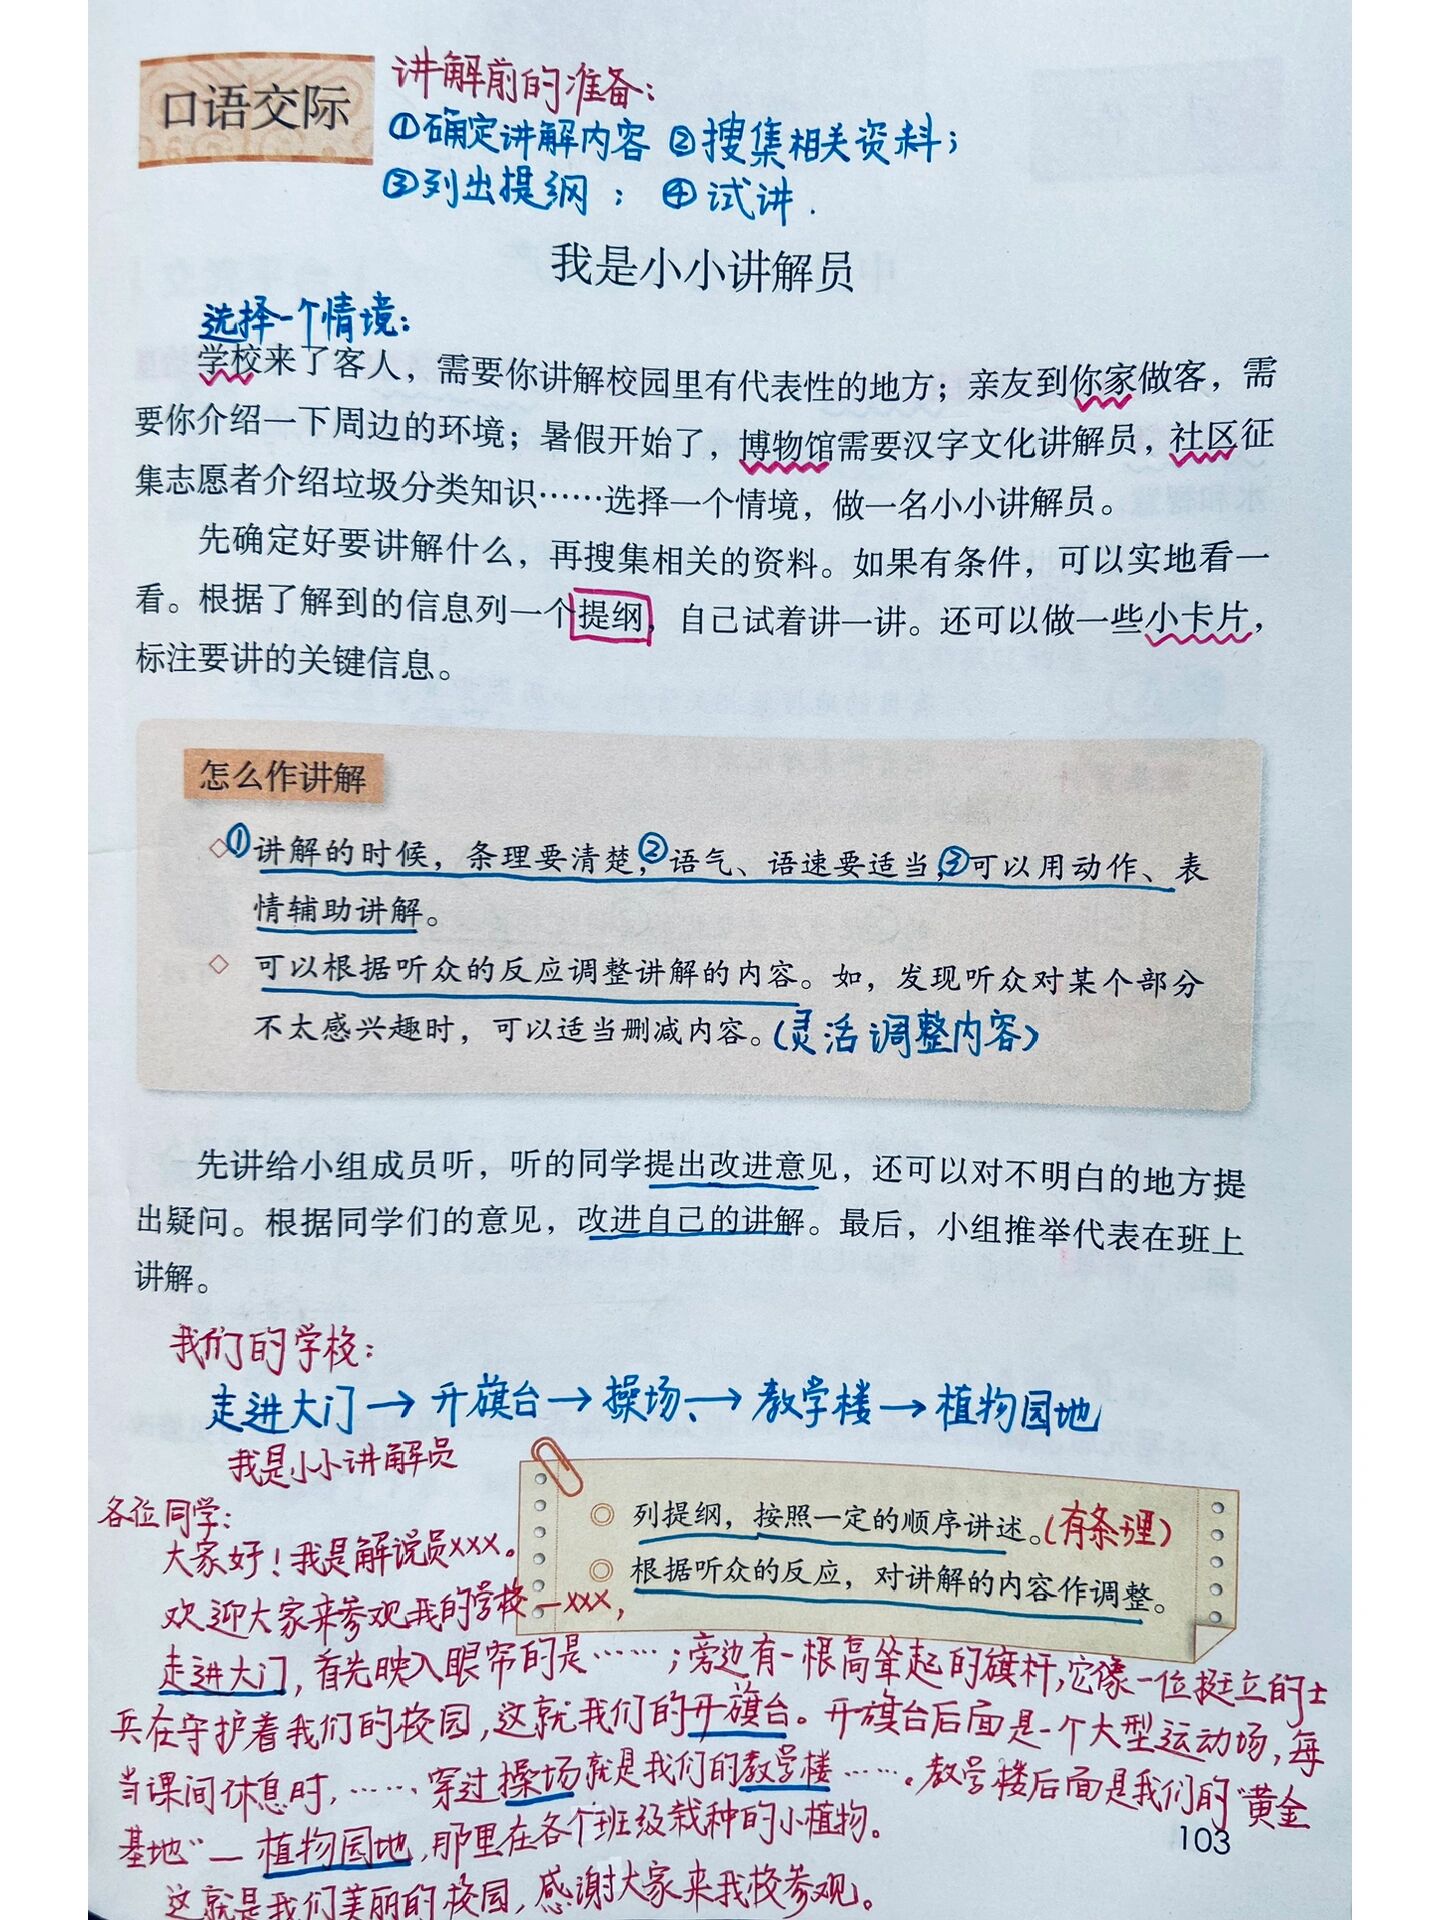 口语交际
讲解前的准备：
①确定讲解内容 ②搜集相关资料；
③列出提纲； ④试讲.
我是小小讲解员
选择一个情境：
学校来了客人，需要你讲解校园里有代表性的地方；亲友到你家做客，需
要你介绍一下周边的环境；暑假开始了，博物馆需要汉字文化讲解员，社区征
集志愿者介绍垃圾分类知识……选择一个情境，做一名小小讲解员。
先确定好要讲解什么，再搜集相关的资料。如果有条件，可以实地看一
看。根据了解到的信息列一个提纲，自己试着讲一讲。还可以做一些小卡片，
标注要讲的关键信息。
怎么作讲解
①讲解的时候，条理要清楚，②语气、语速要适当，③可以用动作、表
情辅助讲解。
可以根据听众的反应调整讲解的内容。如，发现听众对某个部分
不太感兴趣时，可以适当删减内容。（灵活调整内容）
先讲给小组成员听，听的同学提出改进意见，还可以对不明白的地方提
出疑问。根据同学们的意见，改进自己的讲解。最后，小组推举代表在班上
讲解。
我们的学校：
走进大门→开旗台→操场、→教学楼→植物园地
我是小小讲解员
列提纲，按照一定的顺序讲述。（有条理）
根据听众的反应，对讲解的内容作调整。
各位同学：
大家好！我是解说员xxx。
欢迎大家来参观我的学校—xxx，
走进大门，首先映入眼帘的是……；旁边有一根高耸起的旗杆，它像一位挺立的士
兵在守护着我们的校园，这就我们的开旗台。开旗台后面是一个大型运动场，每
当课间休息时，……，穿过操场就是我们的教学楼……。教学楼后面是我们的“黄金
基地”—植物园地，那里在各个班级栽种的小植物。
这就是我们美丽的校园，感谢大家来我校参观。
103